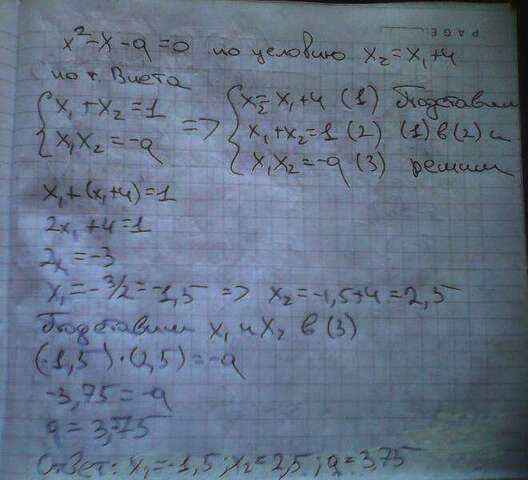 PAGE
x²-x-q=0 по условию x₂=x₁+4
по т. Виета
{x₁+x₂=1 {x₂=x₁+4 (1) Подставим
{x₁x₂=-q => {x₁+x₂=1 (2) (1) в (2) и
{x₁x₂=-q (3) решим
x₁+(x₁+4)=1
2x₁+4=1
2x₁=-3
x₁=-3/2=-1,5 => x₂=-1,5+4=2,5
Подставим x₁ и x₂ в (3)
(-1,5)·(2,5)=-q
-3,75=-q
q=3,75
Ответ: x₁=-1,5; x₂=2,5; q=3,75